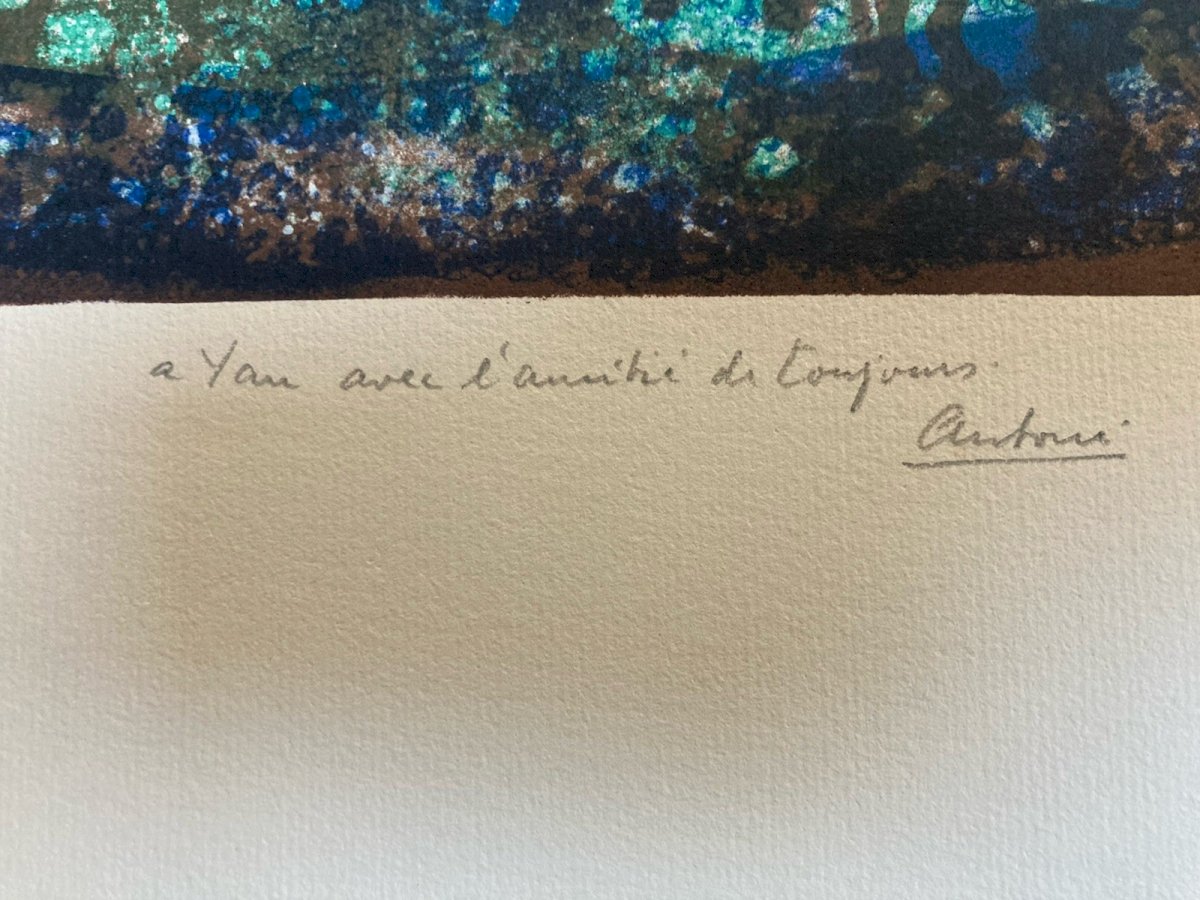 a Yan avec l'amitié de toujours.
Antoni